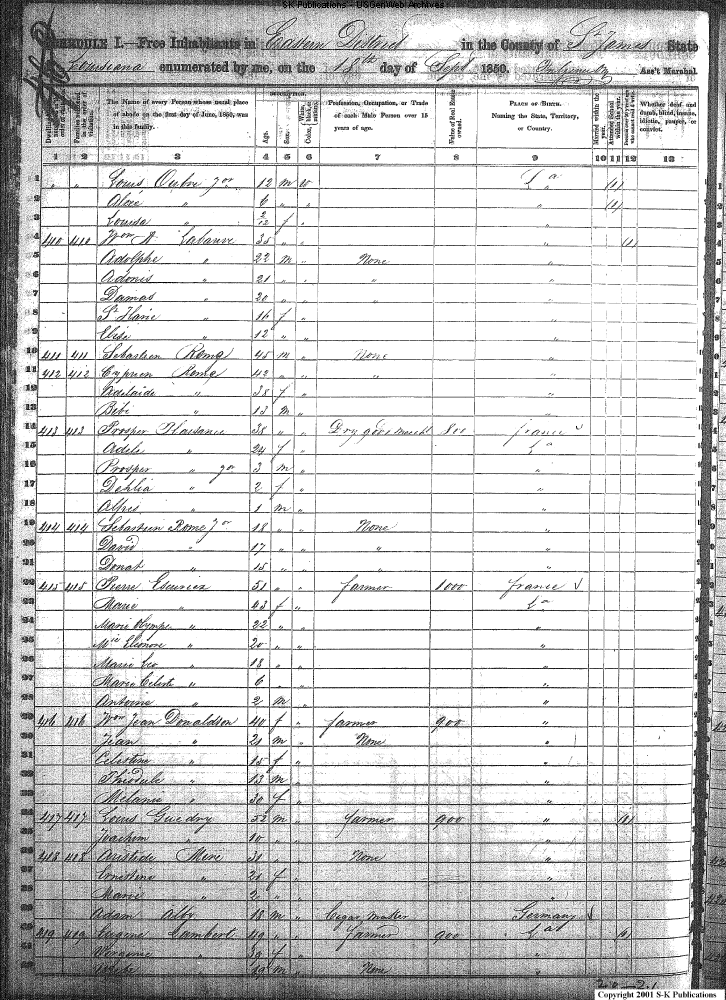 S-K Publications - USGenWeb Archives
SCHEDULE I.—Free Inhabitants in Eastern District in the County of St James State
Louisiana enumerated by me, on the 18th day of Sept 1850. Ass't Marshal
The Name of every Person whose usual place of abode on the first day of June, 1850, was in this family.
Age.
Sex.
Profession, Occupation, or Trade of each Male Person over 15 years of age.
Value of Real Estate owned.
Place of Birth. Naming the State, Territory, or Country.
Married within the year.
Attended School within the year.
Whether deaf and dumb, blind, insane, idiotic, pauper, or convict.
1 2 3 4 5 6 7 8 9 10 11 12 13
1 " " Louis Oubre Jr 12 m w La (1)
2 " 6 " " " (1)
3 Louisa " 2/12 f " "
4 410 410 A Labauve 35 " " " (1)
5 Adolphe " 22 m " None "
6 Adonis " 21 " " " "
7 Damas " 20 " " " "
8 " 16 f " "
9 Elise " 12 " " "
10 411 411 Sebastien Rome 45 m " None "
11 412 412 Cyprien Rome 42 " " " "
12 Adelaide " 38 f " "
13 Bebe " 13 m " "
14 413 413 Prosper Plaisance 38 " " Dry goods Mercht 800 france
15 Adele " 24 f " La
16 Prosper " Jr 3 m " "
17 Dehlia " 2 f " "
18 " 1 m " "
19 414 414 Sebastien Rome Jr 18 " " None "
20 David " 17 " " " "
21 Donat " 15 " " " "
22 415 415 Pierre 51 " " farmer 1000 france
23 Marie " 43 f " La
24 Marie Olympe " 22 " " "
25 Mie Eleonore " 20 " " "
26 Marie " 18 " " "
27 Marie Celeste " 6 " " "
28 Antoine " 2 m " "
29 416 416 Jean Donaldson 40 f " farmer 900 "
30 Jean " 21 m " None "
31 Celestine " 15 f " "
32 " 13 m " "
33 Melanie " 30 f " "
34 417 417 Louis Guedry 52 m " farmer 900 " (1)
35 Joachim " 10 " " "
36 418 418 Aristide 31 " " None "
37 Ernestine " 21 f " "
38 Marie " 2 " " "
39 Adam Alby 18 m " Cigar Maker Germany
40 419 419 Eugene Lambert 49 " " farmer 900 La
41 " 39 f " "
42 " 19 m " None "
Copyright 2001 S-K Publications